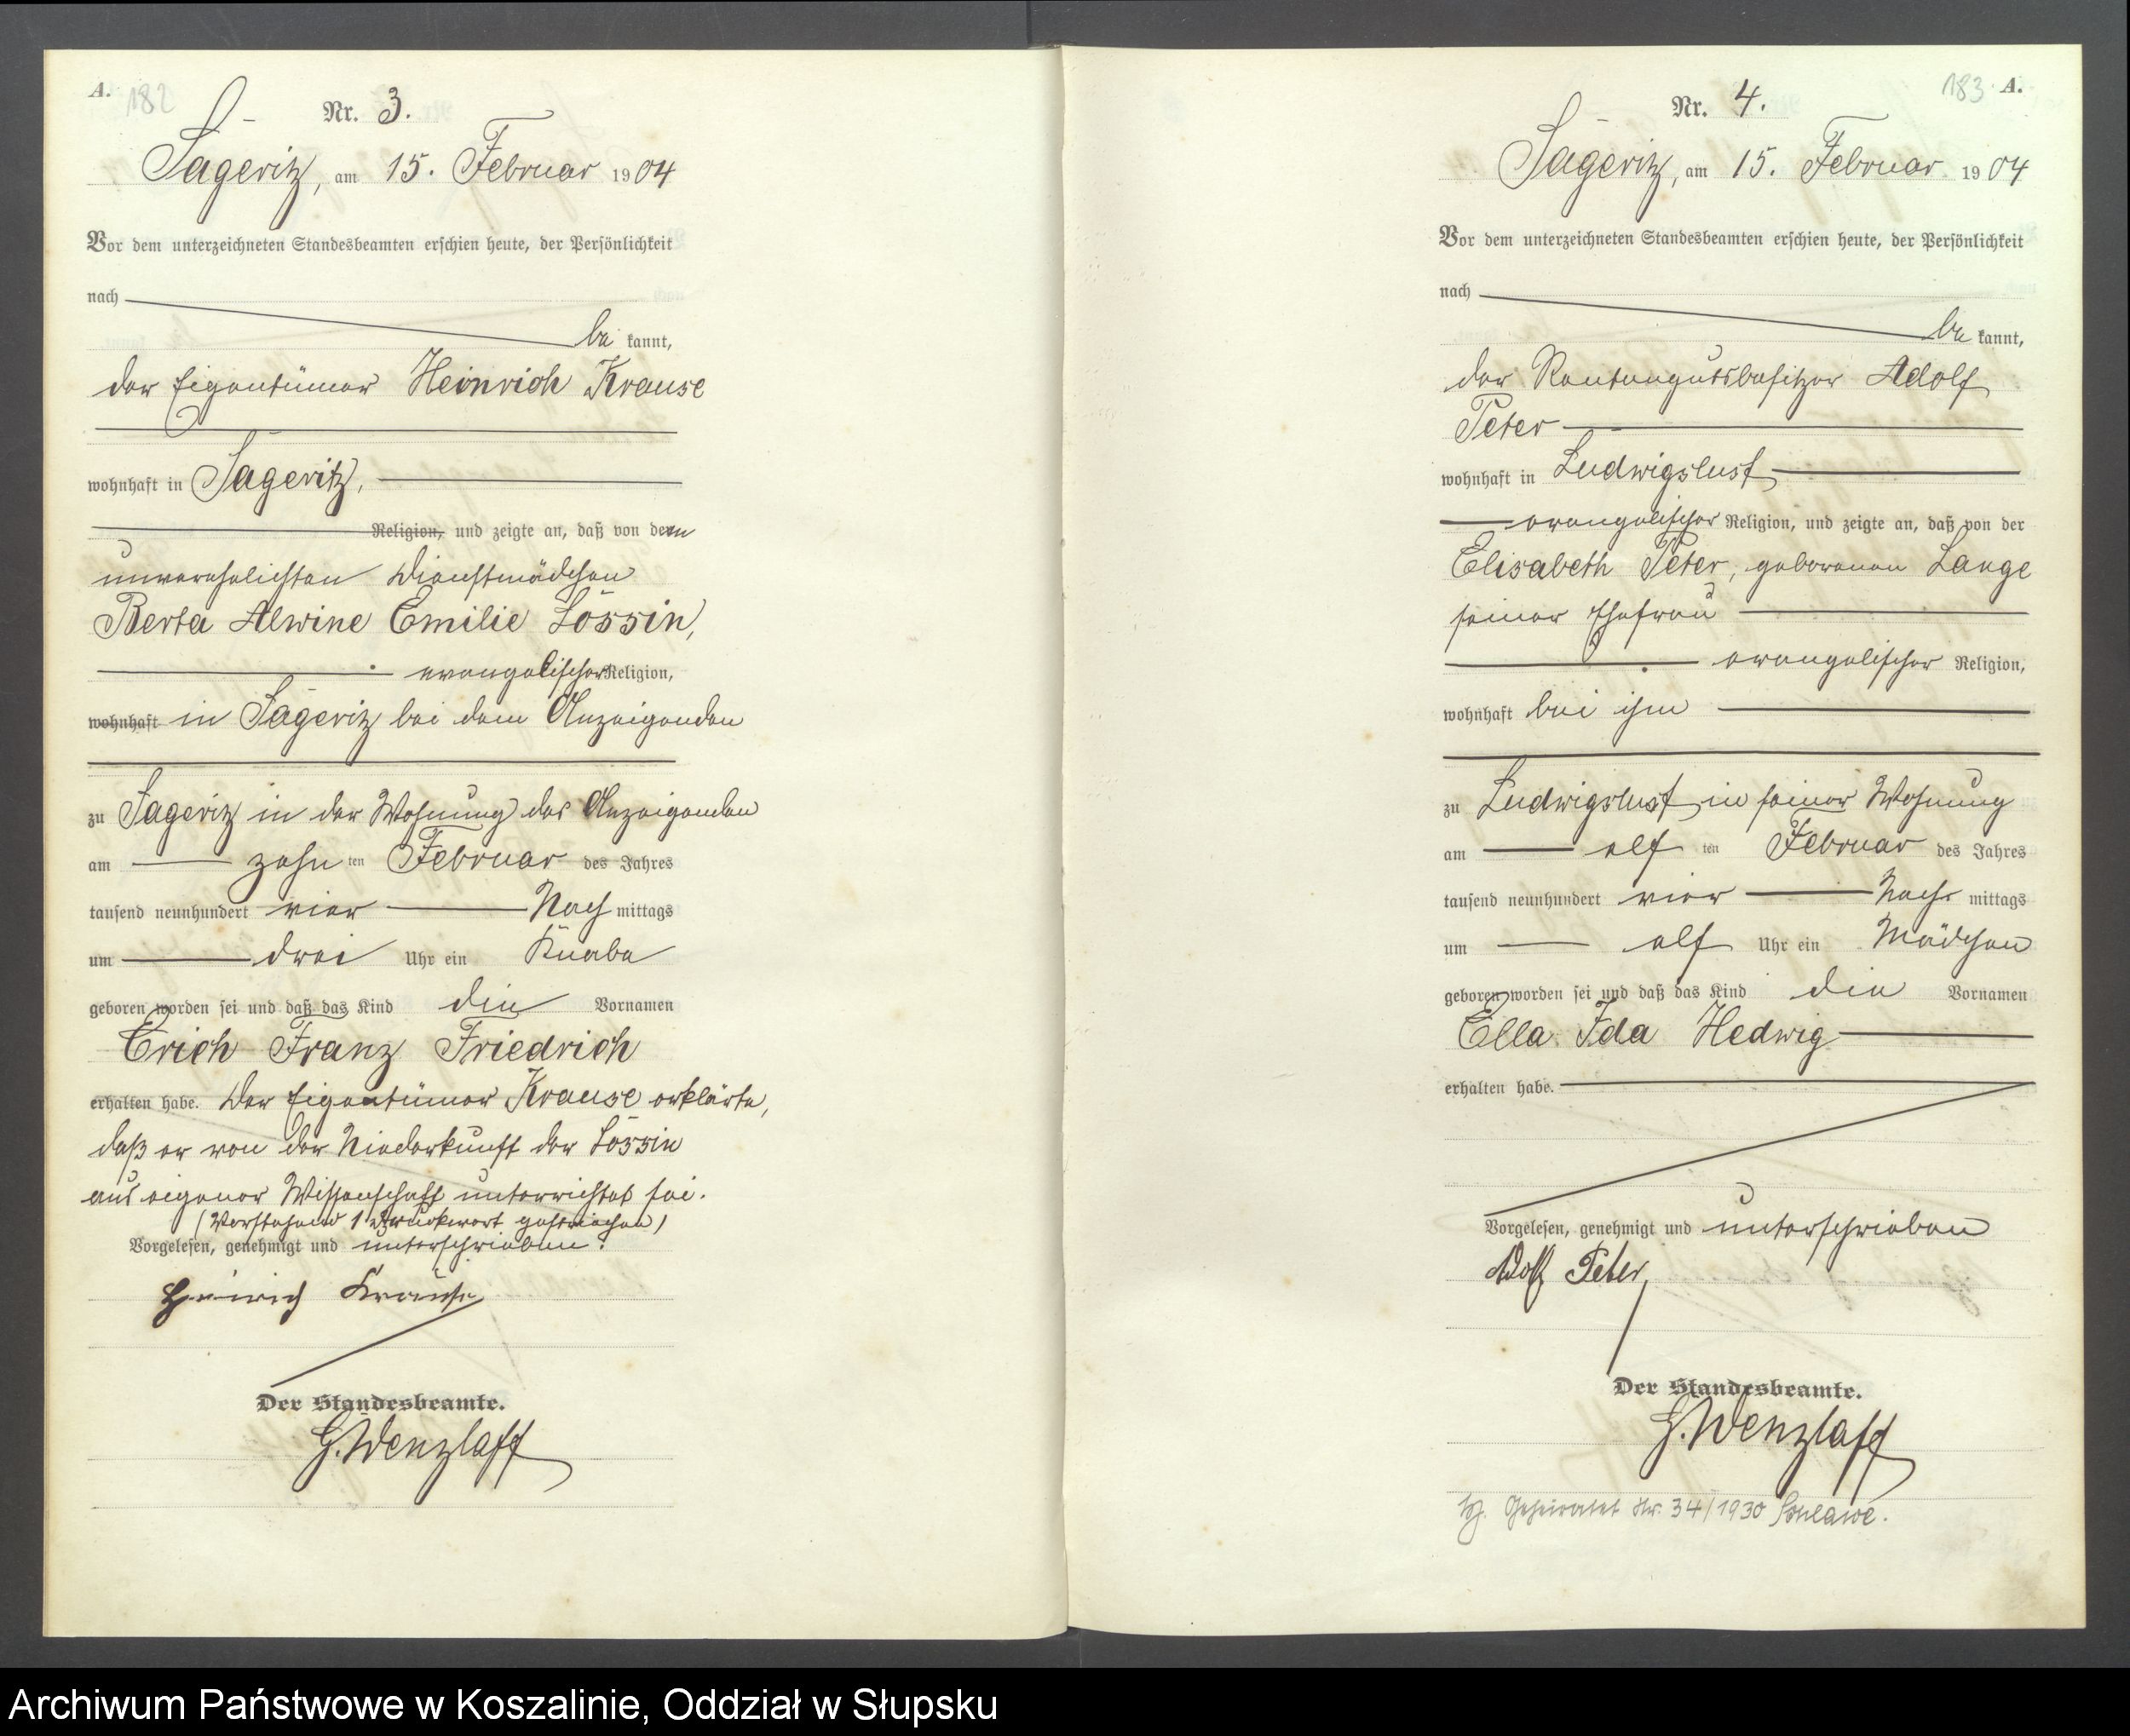 A.
182
Nr. 3.
Sageritz, am 15. Februar 1904
Vor dem unterzeichneten Standesbeamten erschien heute, der Persönlichkeit
nach
be kannt,
der Eigentümer Heinrich Krause
wohnhaft in Sageritz,
Religion, und zeigte an, daß von dem
unverehelichten Dienstmädchen
Berta Alwine Emilie Lössin,
evangelischer Religion,
wohnhaft in Sageritz bei dem Anzeigenden
zu Sageritz in der Wohnung des Anzeigenden
am zehn ten Februar des Jahres
tausend neunhundert vier Nach mittags
um drei Uhr ein Knabe
geboren worden sei und daß das Kind die Vornamen
Erich Franz Friedrich
erhalten habe. Der Eigentümer Krause erklärte,
daß er von der Niederkunft der Lössin
aus eigener Wissenschaft unterrichtet sei.
(Vorstehend 1 Druckwort gestrichen)
Vorgelesen, genehmigt und unterschrieben.
Heinrich Krause
Der Standesbeamte.
G. Wenzlaff
183 A.
Nr. 4.
Sageritz, am 15. Februar 1904
Vor dem unterzeichneten Standesbeamten erschien heute, der Persönlichkeit
nach
be kannt,
der Rentengutsbesitzer Adolf
Peter
wohnhaft in Ludwigslust
evangelischer Religion, und zeigte an, daß von der
Elisabeth Peter, geborenen Lange
seiner Ehefrau
evangelischer Religion,
wohnhaft bei ihm
zu Ludwigslust in seiner Wohnung
am elf ten Februar des Jahres
tausend neunhundert vier Nach mittags
um elf Uhr ein Mädchen
geboren worden sei und daß das Kind die Vornamen
Ella Ida Hedwig
erhalten habe.
Vorgelesen, genehmigt und unterschrieben
Adolf Peter
Der Standesbeamte.
G. Wenzlaff
Geheiratet Nr. 34/1930 Schlawe.
Archiwum Państwowe w Koszalinie, Oddział w Słupsku